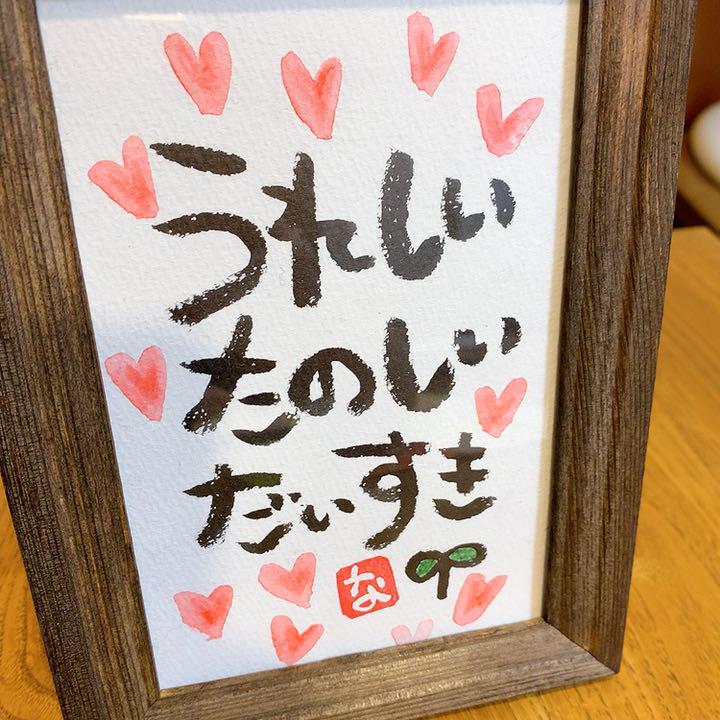 うれしい
たのしい
だいすき
な